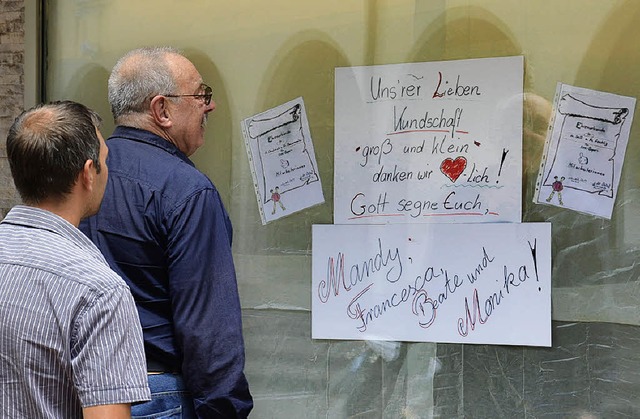 Uns'rer Lieben
Kundschaft
groß und klein
danken wir ♥-lich!
Gott segne Euch,
Mandy,
Francesca,
Beate und
Monika!